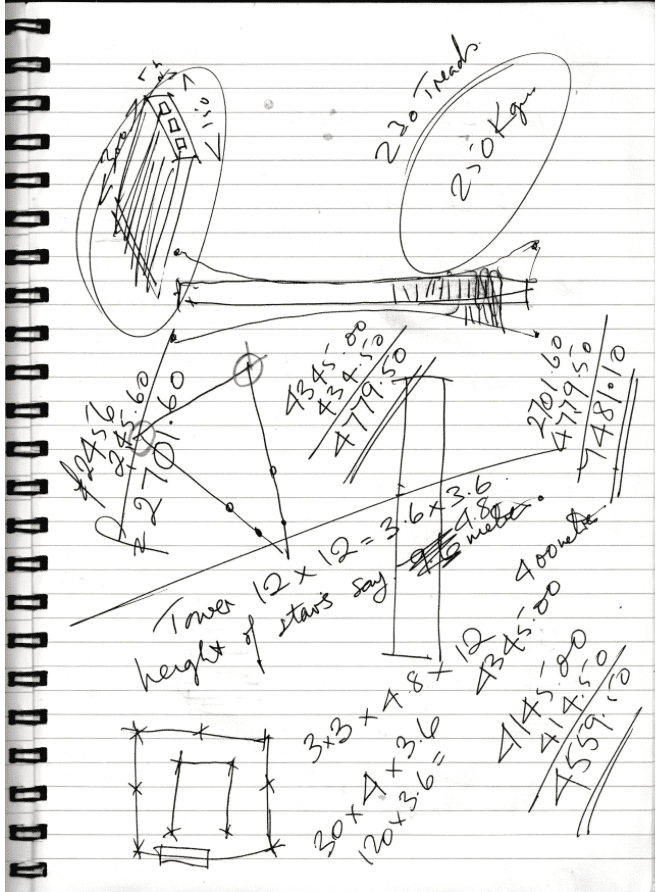 150
300
230 Treads
250 Kgm
2456
245.60
2701.60
4345.00
434.50
4779.50
2701.60
4779.50
7481.10
Tower 12 x 12 = 3.6 x 3.6
height of stairs say 4.8 metre.
400 metre
4345.00
3x3 x 4.8 x 12
30 x 4 x 3.6
120 x 3.6 =
4145.00
414.50
4559.50